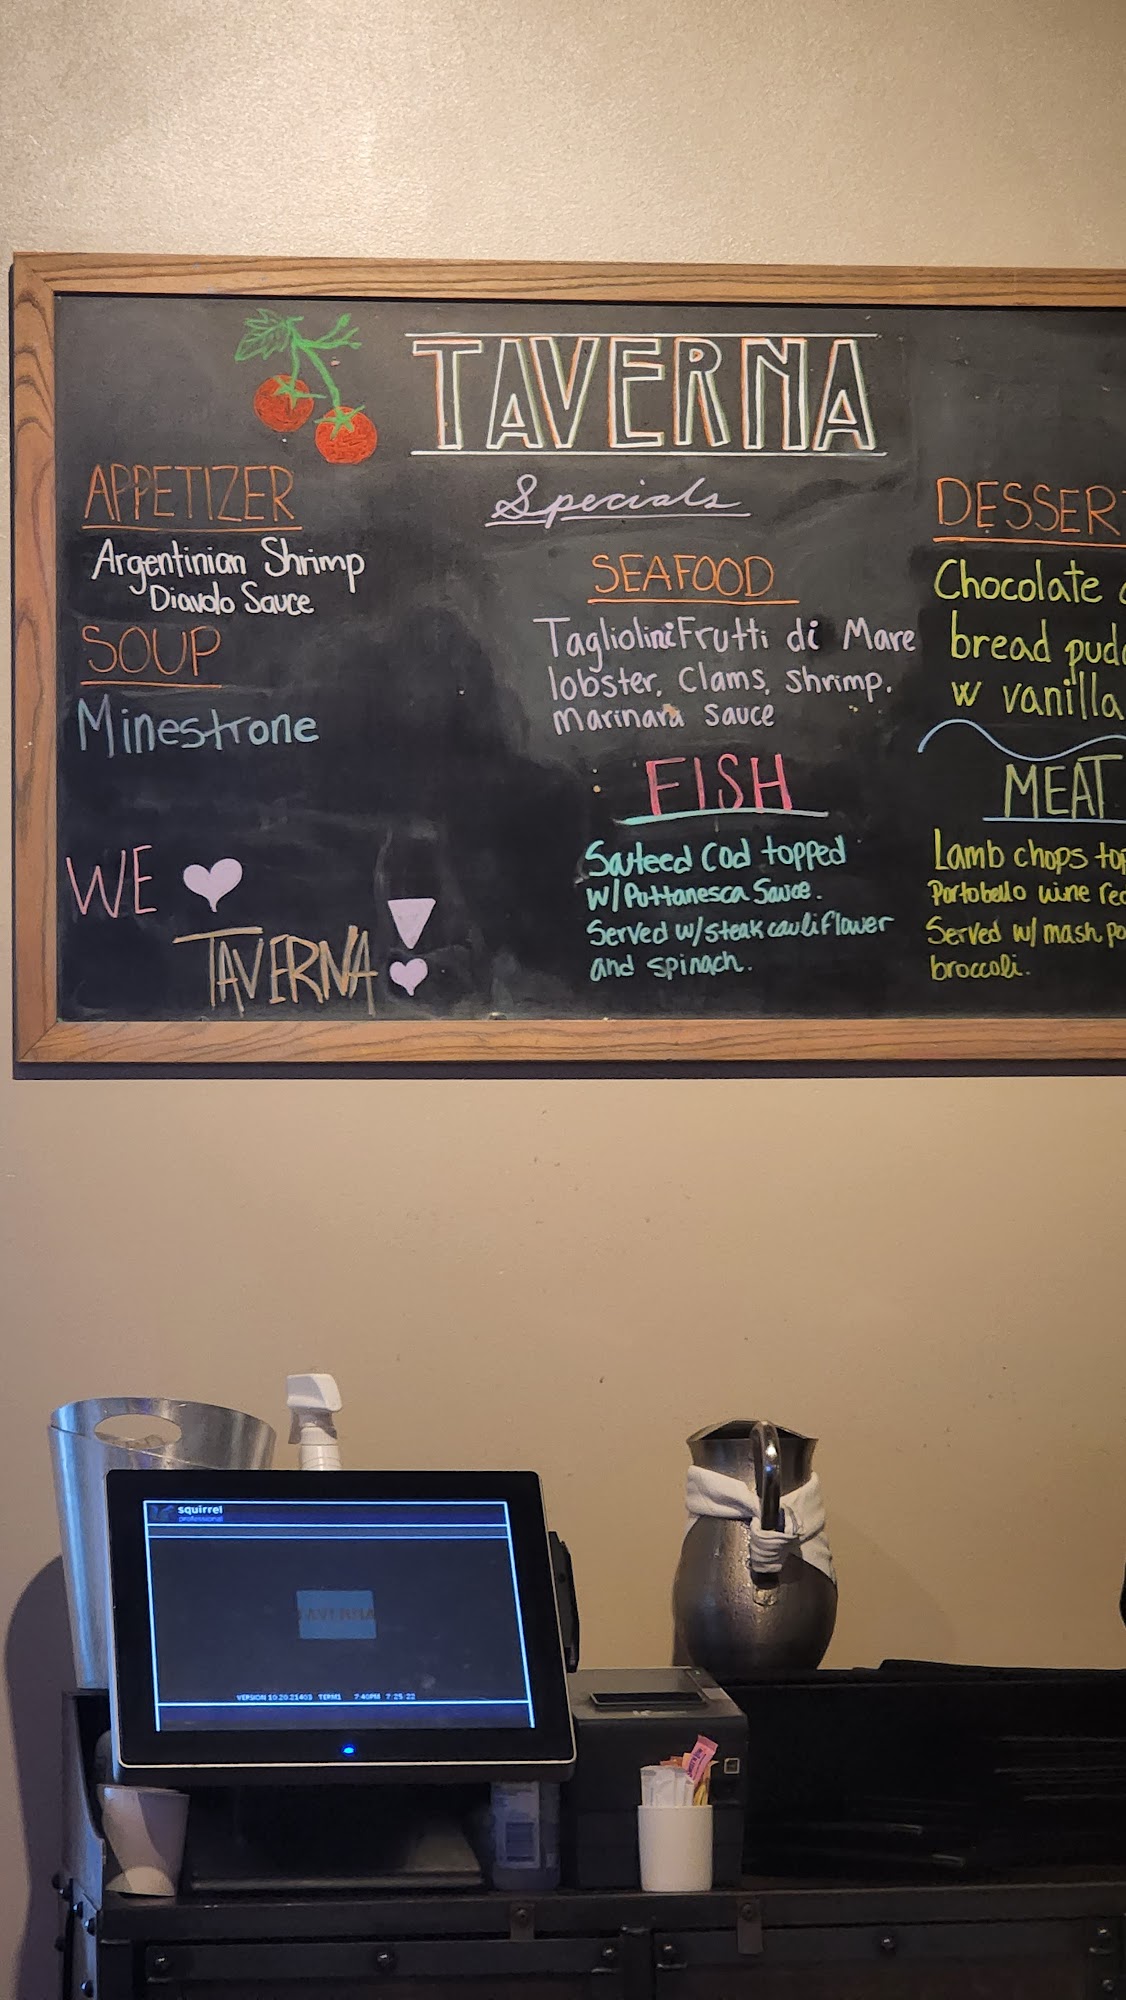 TAVERNA
Specials
APPETIZER
Argentinian Shrimp
Diavolo Sauce
SOUP
Minestrone
WE
TAVERNA
SEAFOOD
Tagliolini Frutti di Mare
lobster, Clams, Shrimp,
Marinara Sauce
FISH
Sauteed Cod topped
w/Puttanesca Sauce.
Served w/steak cauliflower
and spinach.
DESSER
Chocolate
bread pud
w vanilla
MEAT
Lamb chops top
Portobello wine red
Served w/ mash po
broccoli.
squirrel
professional
TAVERNA
VERSION 10.20.21403 TERM1 7:40PM 7/25/22